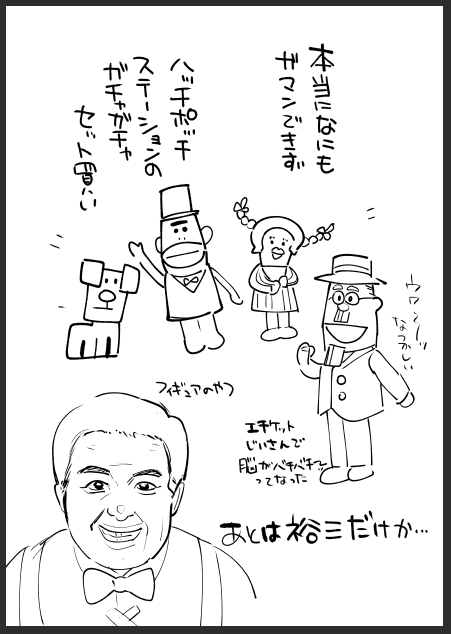 本当になにも
ガマンできず
ハッチポッチ
ステーションの
ガチャガチャ
セット買い
ウワ〜〜!!
なつかしい
フィギュアのやつ
エチケット
じいさんで
脳がバチバチ〜
ってなった
あとは裕三だけか…